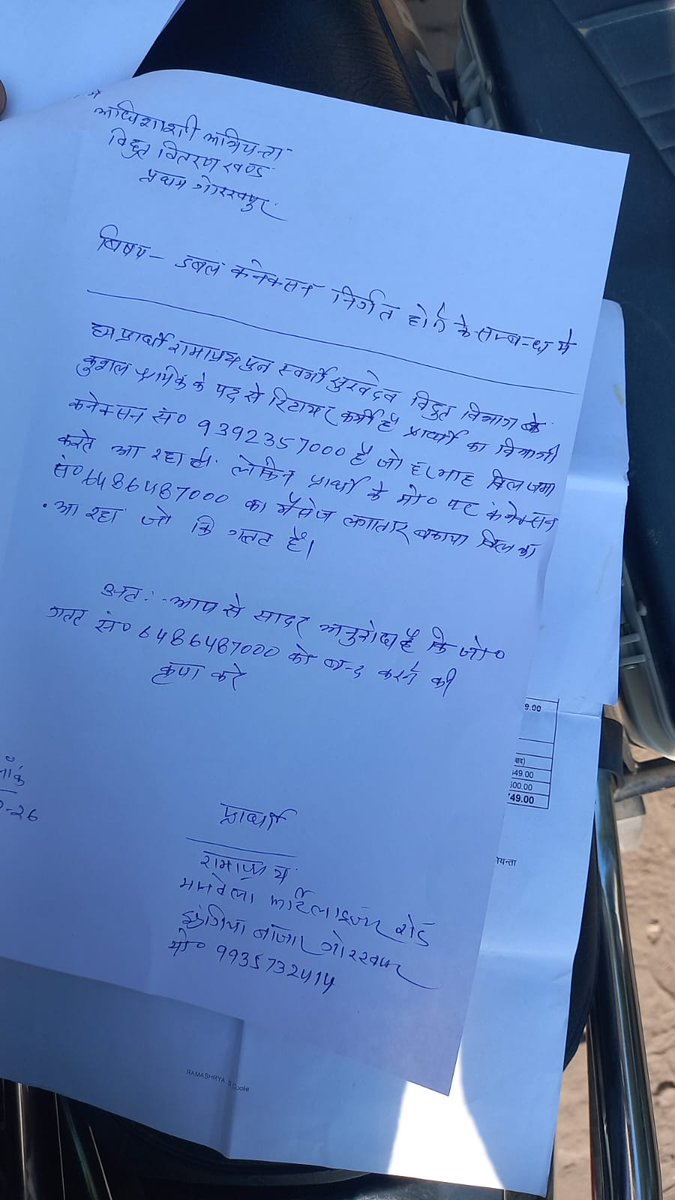 अधिशाषी अभियन्ता
विद्युत वितरण खण्ड
प्रथम गोरखपुर
बिषय - डबल कनेक्सन निर्गत होने के सम्बन्ध मे
प्रार्थी रामाश्रय पुत्र स्वर्गी सुखदेव विद्युत विभाग के
कुशल श्रमिक के पद से रिटायर कर्मी है प्रार्थी का विभागी
कनेक्सन सं० 9392357000 है जो हर माह बिल जमा
करते आ रहा है। लेकिन प्रार्थी के मो० पर कनेक्सन
सं० 6486487000 का मैसेज लगातार बकाया बिल का
आ रहा जो कि गलत है।
अतः आप से सादर अनुरोध है कि जो०
गलत सं० 6486487000 को बन्द करने की
कृपा करे
प्रार्थी
रामाश्रय
फर्टिलाइजर रोड
बाजार गोरखपुर
मो० 9935732414
-26
9.00
649.00
600.00
749.00
RAMASHRYA